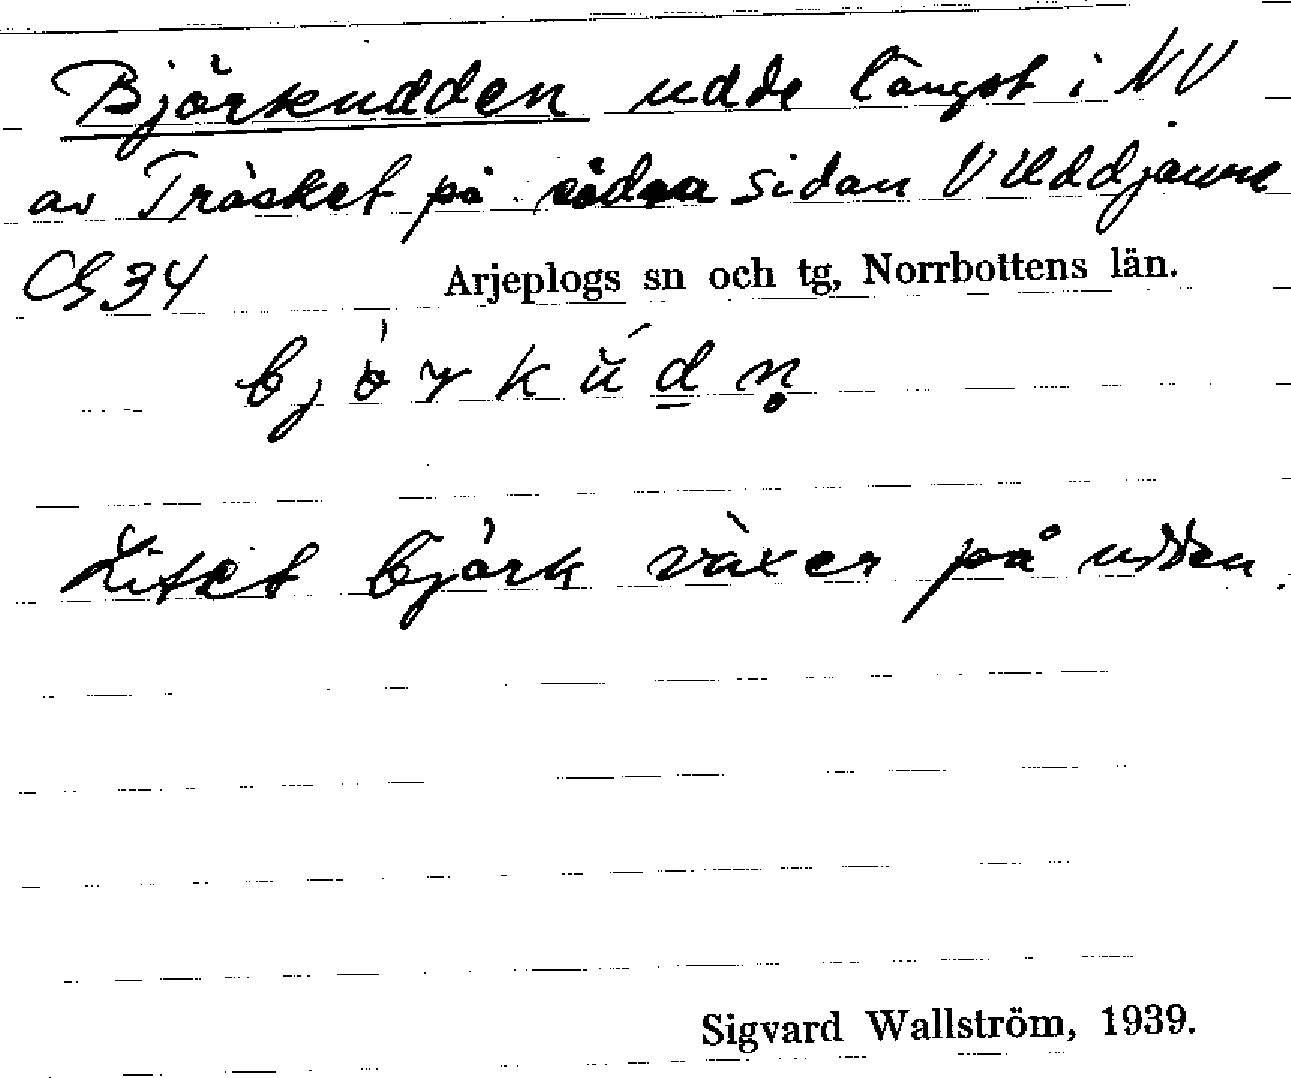 Björkudden udde längst i NV
av Träsket på södra sidan V Uddjaure
CG34 Arjeplogs sn och tg, Norrbottens län.
bjørkúdn̥
Litet björk växer på udden.
Sigvard Wallström, 1939.